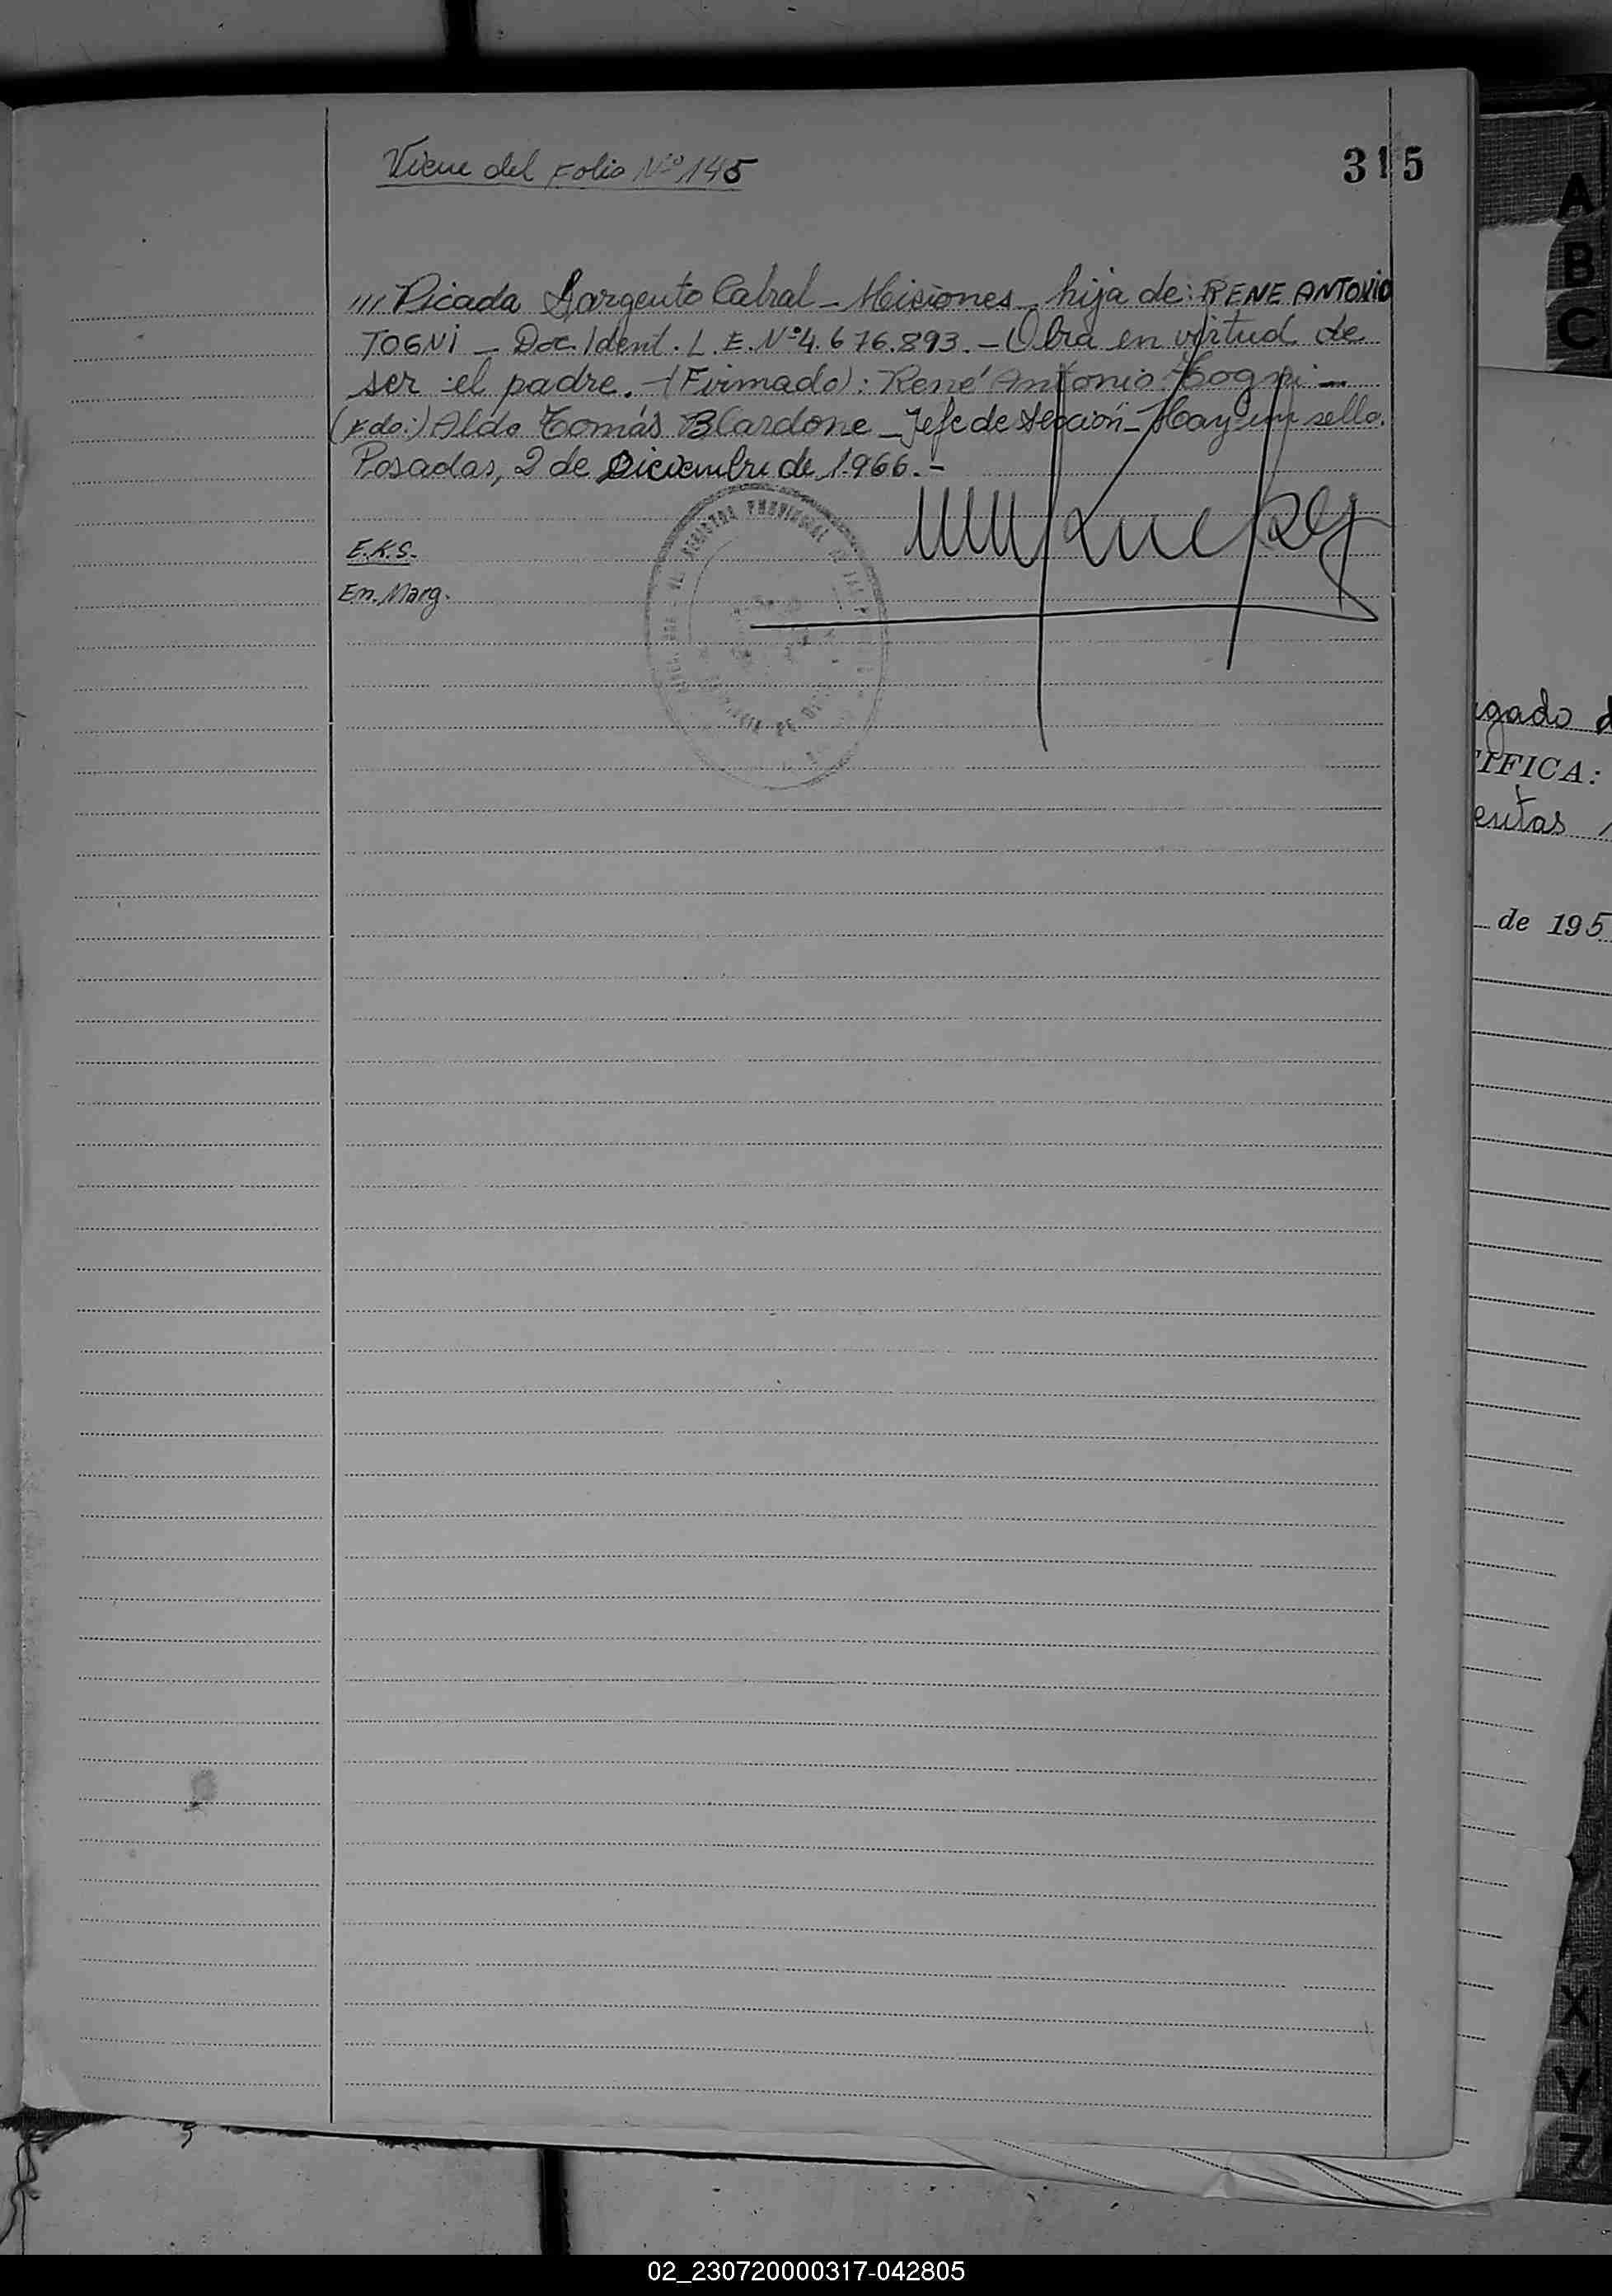 Viene del Folio Nº 145
315
/// Picada Sargento Cabral - Misiones - hija de: RENE ANTONIO
TOGNI - Doc. Ident. L.E. Nº 4.676.893. - Obra en virtud de
ser el padre. - (Firmado): René Antonio Togni -
(Fdo:) Aldo Tomás Blardone - Jefe de Sección - Hay un sello.
Posadas, 2 de Diciembre de 1.966. -
E.K.S.
En. Marg.
REGISTRO PROVINCIAL DE LAS
A
B
C
gado d
TIFICA:
entas
de 195
X
Y
Z
02_230720000317-042805